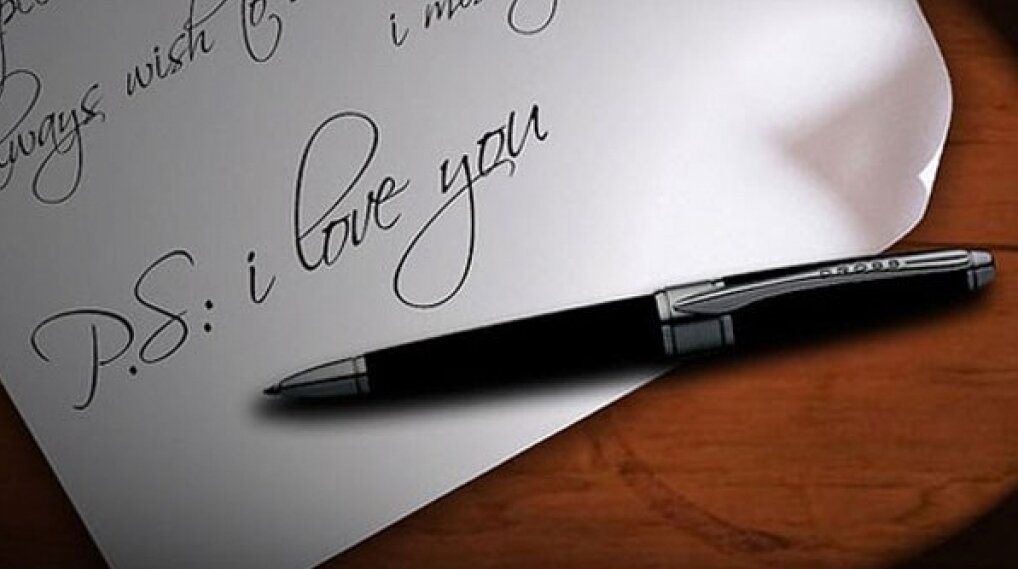 always, wish to
i
P.S: i love you
CROSS